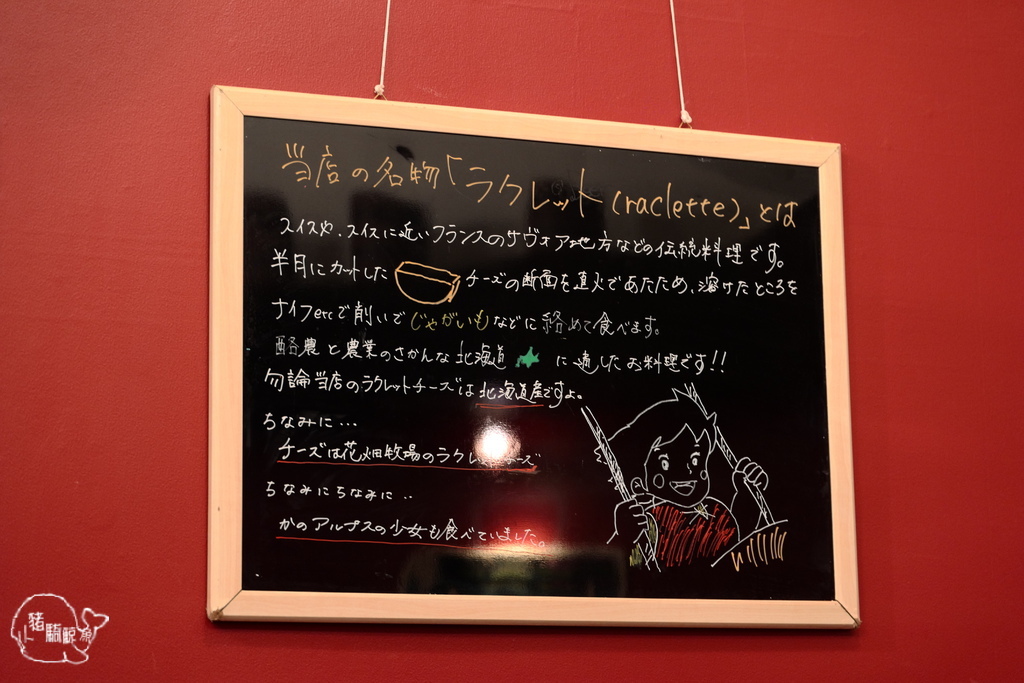 当店の名物「ラクレット(raclette)」とは
スイスや、スイスに近いフランスのサヴォア地方などの伝統料理です。
半月にカットした チーズの断面を直火であたため、溶けたところを
ナイフetcで削いでじゃがいもなどに絡めて食べます。
酪農と農業のさかんな北海道 に適したお料理です!!
勿論当店のラクレットチーズは北海道産ですよ。
ちなみに…
チーズは花畑牧場のラクレットチーズ
ちなみにちなみに‥
かのアルプスの少女も食べていました。
豬騎鯨魚